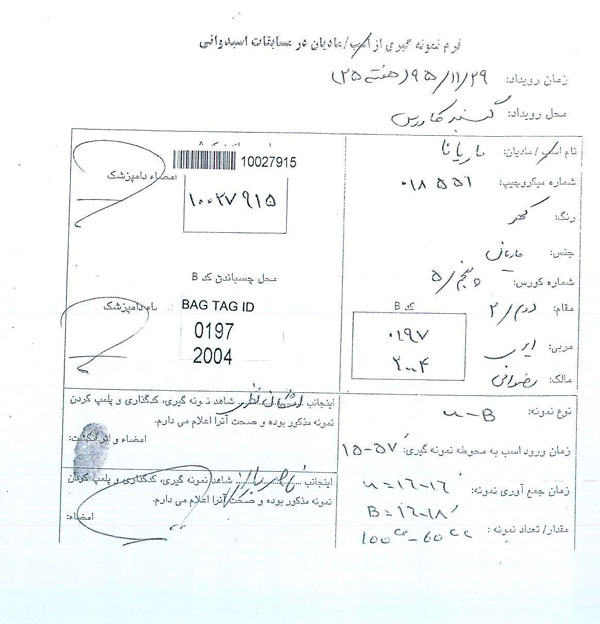 فرم نمونه گیری از اسب/مادیان در مسابقات اسبدوانی
زمان رویداد: ۹۵/۱۱/۲۹ (هفته ۲۵)
محل رویداد: گنبد کاووس
نام اسب/مادیان: ماریانا
شماره میکروچیپ: ۰۱۸۵۵۱
رنگ: کهر
جنس: مادیان
شماره کورس: پنجم/۵
مقام: دوم/۲
کد B
۰۱۹۷
۲۰۰۴
مربی:
مالک: رضوانی
10027915
امضاء دامپزشک
۱۰۰۲۷۹۱۵
محل چسباندن کد B
نام دامپزشک
BAG TAG ID
0197
2004
نوع نمونه: u-B
زمان ورود اسب به محوطه نمونه گیری: ۱۵-۵۷
زمان جمع آوری نمونه: u=۱۶-۱۶
B=۱۶-۱۸
مقدار/ تعداد نمونه: 100cc-60cc
اینجانب شاهد نمونه گیری، کدگذاری و پلمپ کردن
نمونه مذکور بوده و صحت آنرا اعلام می دارم.
امضاء و اثر انگشت:
اینجانب شاهد نمونه گیری، کدگذاری و پلمپ کردن
نمونه مذکور بوده و صحت آنرا اعلام می دارم.
امضاء: